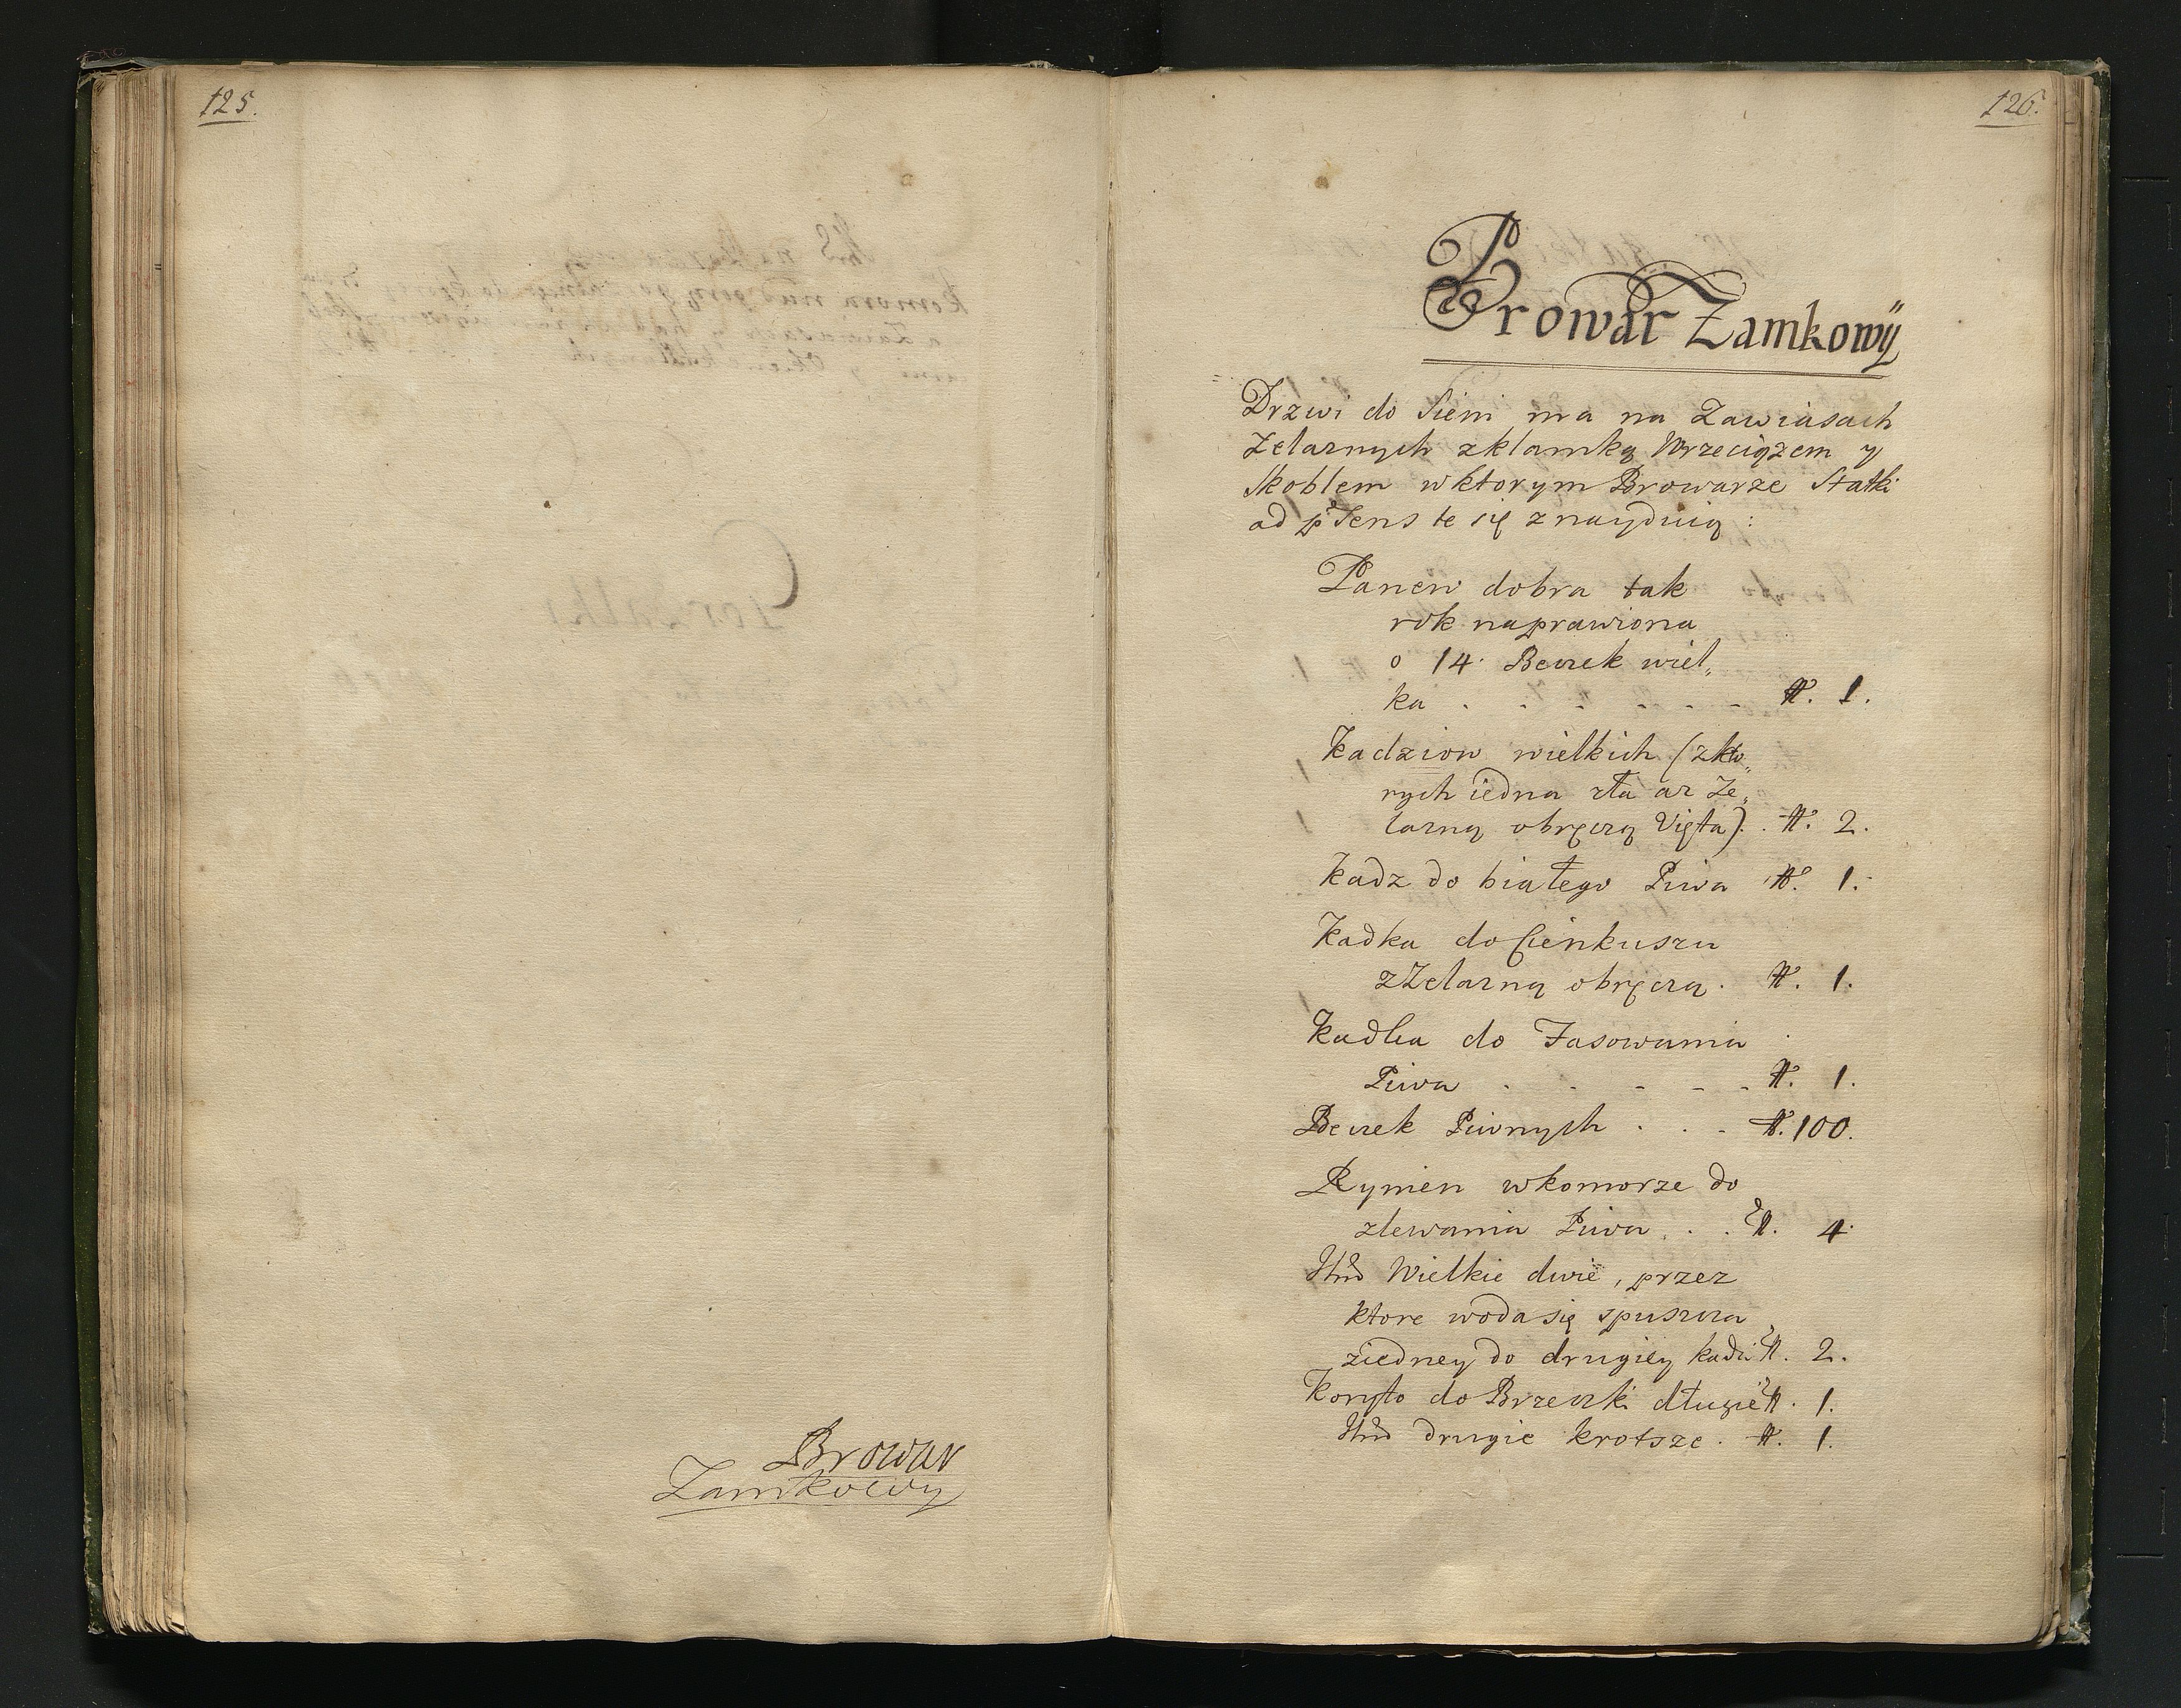 125.
Browar
Zamkowy
126.
Browar Zamkowÿ
Drzwi do Sieni ma na Zawiasach
Zelaznych zklamką Wrzeciązem y
Skoblem wktorym Browarze Statki
ad p͠sens te się znayduią :
Panew dobra tak
rok naprawiona
o 14. Beczek wiel„
ka . - - - - - N. 1.
Kadziow wielkich (zkto„
rych iedna zła az Ze„
lazną obręczą Vięta). . N. 2.
Kadz do białego Piwa N. 1.
Kadka do Cienkuszu
zZelazną obręczą. N. 1.
Kadka do Fasowania
Piwa . - - - - N. 1.
Beczek Piwnych . . - N. 100.
Rynien wkomorze do
zlewania Piwa . . . N. 4.
Wielkie dwie, przez
ktore woda się spuszcza
ziedney do drugiey kadzi N. 2.
Koryto do Brzeczki długie N. 1.
drugie krotsze. N. 1.